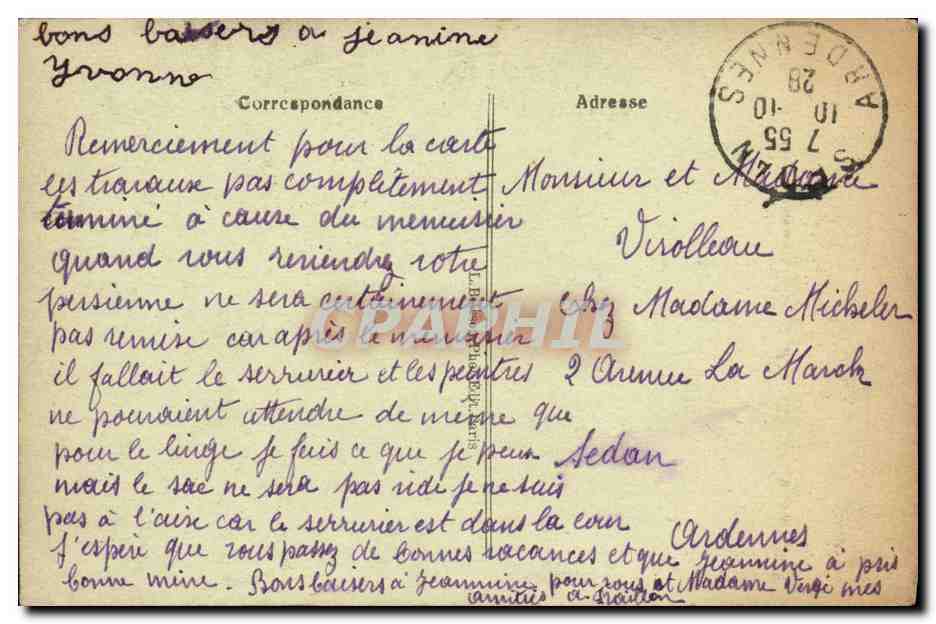 bons baisers a jeanine
Yvonne
Correspondance
Remerciement pour la carte
les travaux pas complètement
terminé à cause du menuisier
quand vous reviendrez votre
persienne ne sera certainement
pas remise car après le menuisier
il fallait le serrurier et les peintres
ne pouvaient attendre de meme que
pour le linge je fais ce que je peux
mais le sac ne sera pas vide je ne suis
pas à l'aise car le serrurier est dans la cour
J'espère que vous passez de bonnes vacances et que Jeannine à pris
bonne mine. Bons baisers à Jeannine pour vous et Madame mes
amitiés
Adresse
Monsieur et Madame
Virolleau
Chez Madame Micheler
2 Avenue La Marck
Sedan
Ardennes
ARDENNES
7 55
10 - 10
28
CPAPHIL